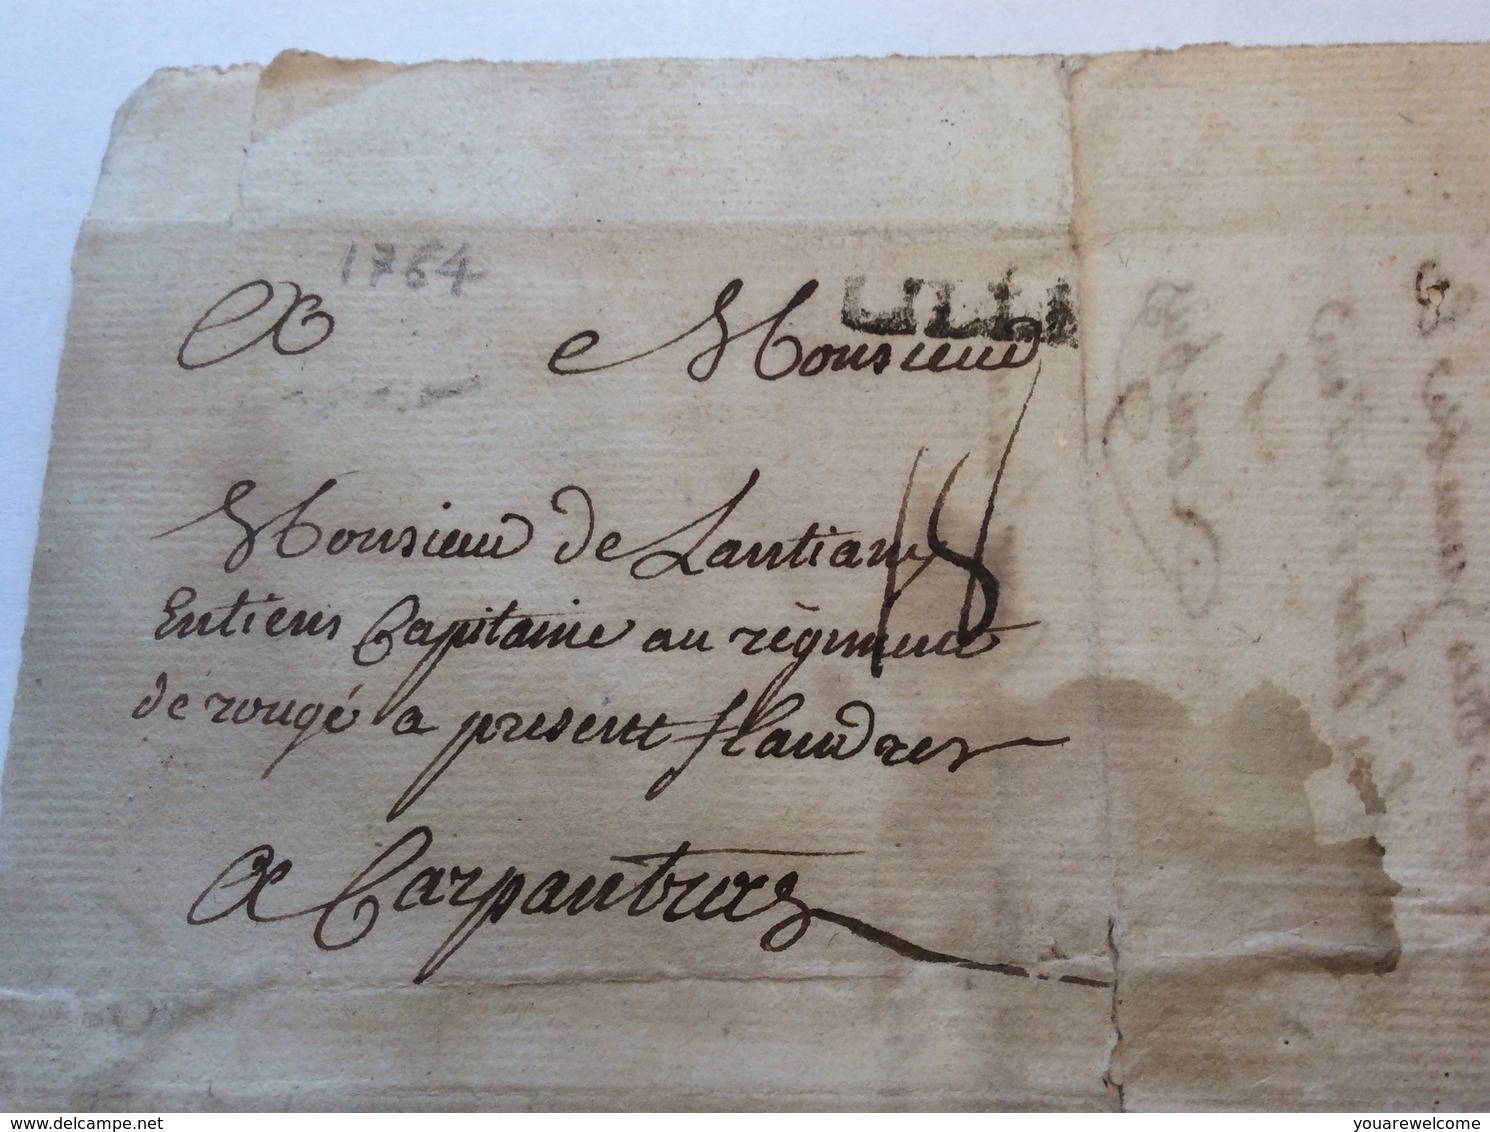 1764
LILLE
A Monsieur
18
Monsieur de Lantiany
Entiens Capitaine au régiment
de rougé a present flandres
A Carpantras
www.delcampe.net
youarewelcome